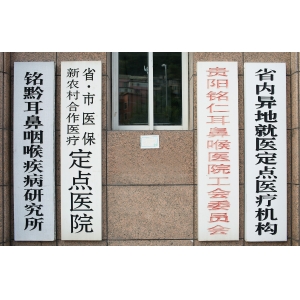 铭黔耳鼻咽喉疾病研究所
省·市医保
新农村合作医疗
定点医院
贵阳铭仁耳鼻喉医院工会委员会
省内异地就医定点医疗机构